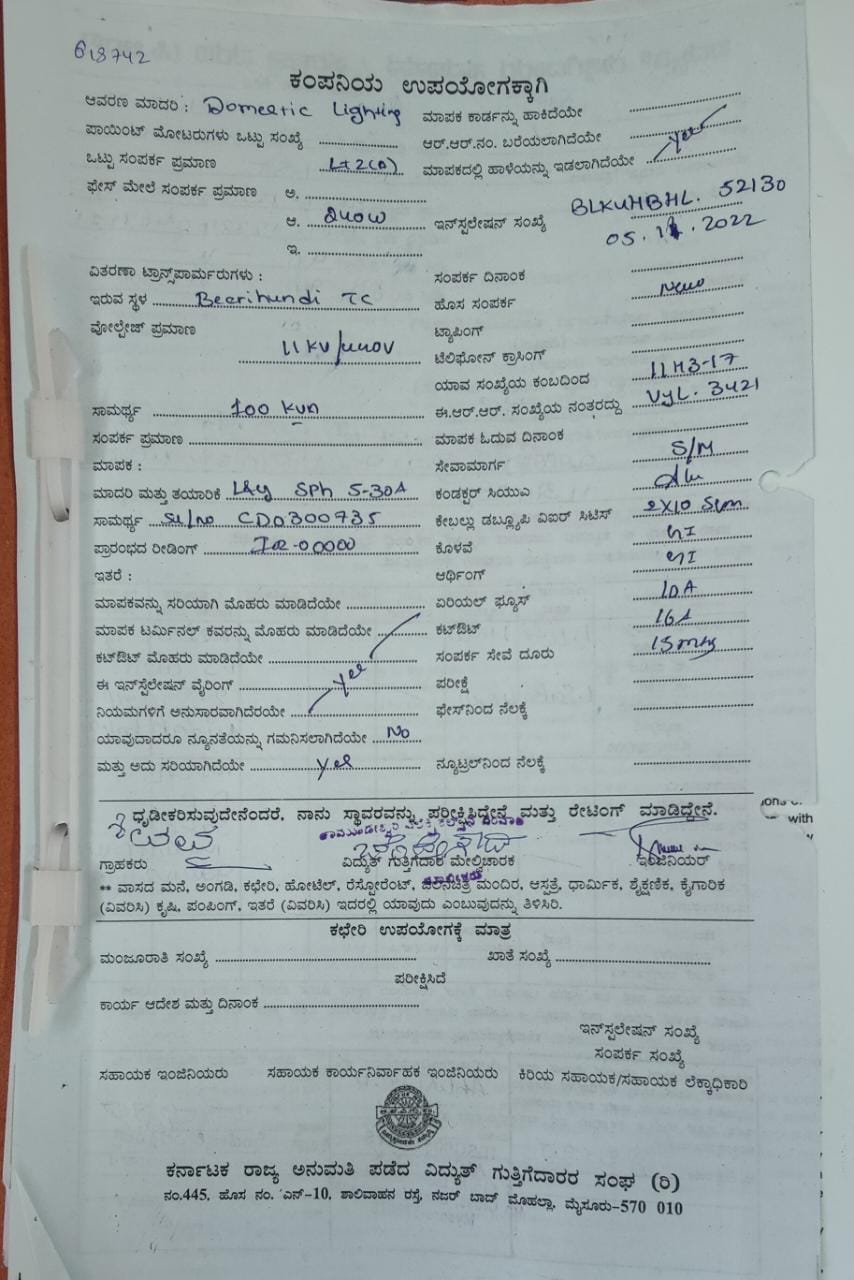 618742
ಕಂಪನಿಯ ಉಪಯೋಗಕ್ಕಾಗಿ
ಆವರಣ ಮಾದರಿ : Domestic Lighting ಮಾಪಕ ಕಾರ್ಡನ್ನು ಹಾಕಿದೆಯೇ
ಪಾಯಿಂಟ್ ಮೋಟರುಗಳು ಒಟ್ಟು ಸಂಖ್ಯೆ ಆರ್.ಆರ್.ನಂ. ಬರೆಯಲಾಗಿದೆಯೇ
ಒಟ್ಟು ಸಂಪರ್ಕ ಪ್ರಮಾಣ Lt2(a) ಮಾಪಕದಲ್ಲಿ ಹಾಳೆಯನ್ನು ಇಡಲಾಗಿದೆಯೇ yes
ಫೇಸ್ ಮೇಲೆ ಸಂಪರ್ಕ ಪ್ರಮಾಣ ಅ.
ಆ. 240W ಇನ್‌ಸ್ಟಲೇಷನ್ ಸಂಖ್ಯೆ BLKUHBHL. 52130
05.11.2022
ಇ.
ವಿತರಣಾ ಟ್ರಾನ್ಸ್‌ಫಾರ್ಮರುಗಳು : ಸಂಪರ್ಕ ದಿನಾಂಕ
ಇರುವ ಸ್ಥಳ Beerihundi TC ಹೊಸ ಸಂಪರ್ಕ New
ವೋಲ್ಟೇಜ್ ಪ್ರಮಾಣ ಟ್ಯಾಪಿಂಗ್
11KV/440V ಟೆಲಿಫೋನ್ ಕ್ರಾಸಿಂಗ್
ಯಾವ ಸಂಖ್ಯೆಯ ಕಂಬದಿಂದ 11H3-17
ಸಾಮರ್ಥ್ಯ 100 KVA ಈ.ಆರ್.ಆರ್. ಸಂಖ್ಯೆಯ ನಂತರದ್ದು VYL. 3421
ಸಂಪರ್ಕ ಪ್ರಮಾಣ ಮಾಪಕ ಓದುವ ದಿನಾಂಕ
ಮಾಪಕ : ಸೇವಾಮಾರ್ಗ S/M
ಮಾದರಿ ಮತ್ತು ತಯಾರಿಕೆ L&G SPh 5-30A ಕಂಡಕ್ಟರ್ ಸಿಯುಎ
ಸಾಮರ್ಥ್ಯ Sl/no CD0300735 ಕೇಬಲ್ಲು ಡಬ್ಲ್ಯೂಪಿ ವಿಐರ್ ಸಿಟಿಸ್ 2X10 Sqm
ಪ್ರಾರಂಭದ ರೀಡಿಂಗ್ IR-00000 ಕೊಳವೆ GI
ಇತರೆ : ಆರ್ಥಿಂಗ್ GI
ಮಾಪಕವನ್ನು ಸರಿಯಾಗಿ ಮೊಹರು ಮಾಡಿದೆಯೇ ಏರಿಯಲ್ ಫ್ಯೂಸ್ 10A
ಮಾಪಕ ಟರ್ಮಿನಲ್ ಕವರನ್ನು ಮೊಹರು ಮಾಡಿದೆಯೇ ಕಟ್‌ಔಟ್ 16A
ಕಟ್‌ಔಟ್ ಮೊಹರು ಮಾಡಿದೆಯೇ ಸಂಪರ್ಕ ಸೇವೆ ದೂರು 15mtg
ಈ ಇನ್‌ಸ್ಟೆಲೇಷನ್ ವೈರಿಂಗ್ yes ಪರೀಕ್ಷೆ
ನಿಯಮಗಳಿಗೆ ಅನುಸಾರವಾಗಿದೆರಯೇ ಫೇಸ್‌ನಿಂದ ನೆಲಕ್ಕೆ
ಯಾವುದಾದರೂ ನ್ಯೂನತೆಯನ್ನು ಗಮನಿಸಲಾಗಿದೆಯೇ No
ಮತ್ತು ಅದು ಸರಿಯಾಗಿದೆಯೇ yes ನ್ಯೂಟ್ರಲ್‌ನಿಂದ ನೆಲಕ್ಕೆ
ಧೃಡೀಕರಿಸುವುದೇನೆಂದರೆ, ನಾನು ಸ್ಥಾವರವನ್ನು ಪರೀಕ್ಷಿಸಿದ್ದೇನೆ ಮತ್ತು ರೇಟಿಂಗ್ ಮಾಡಿದ್ದೇನೆ.
with
ಗ್ರಾಹಕರು ವಿದ್ಯುತ್ ಗುತ್ತಿಗೆದಾರ ಮೇಲ್ವಿಚಾರಕ ಇಂಜಿನಿಯರ್
** ವಾಸದ ಮನೆ, ಅಂಗಡಿ, ಕಛೇರಿ, ಹೋಟೆಲ್, ರೆಸ್ಟೋರೆಂಟ್, ಚಲನಚಿತ್ರ ಮಂದಿರ, ಆಸ್ಪತ್ರೆ, ಧಾರ್ಮಿಕ, ಶೈಕ್ಷಣಿಕ, ಕೈಗಾರಿಕ
(ವಿವರಿಸಿ) ಕೃಷಿ, ಪಂಪಿಂಗ್, ಇತರೆ (ವಿವರಿಸಿ) ಇದರಲ್ಲಿ ಯಾವುದು ಎಂಬುವುದನ್ನು ತಿಳಿಸಿರಿ.
ಕಛೇರಿ ಉಪಯೋಗಕ್ಕೆ ಮಾತ್ರ
ಮಂಜೂರಾತಿ ಸಂಖ್ಯೆ ಖಾತೆ ಸಂಖ್ಯೆ
ಪರೀಕ್ಷಿಸಿದೆ
ಕಾರ್ಯ ಆದೇಶ ಮತ್ತು ದಿನಾಂಕ
ಇನ್‌ಸ್ಟಲೇಷನ್ ಸಂಖ್ಯೆ
ಸಂಪರ್ಕ ಸಂಖ್ಯೆ
ಸಹಾಯಕ ಇಂಜಿನಿಯರು ಸಹಾಯಕ ಕಾರ್ಯನಿರ್ವಾಹಕ ಇಂಜಿನಿಯರು ಕಿರಿಯ ಸಹಾಯಕ/ಸಹಾಯಕ ಲೆಕ್ಕಾಧಿಕಾರಿ
ಕರ್ನಾಟಕ ರಾಜ್ಯ ಅನುಮತಿ ಪಡೆದ ವಿದ್ಯುತ್ ಗುತ್ತಿಗೆದಾರರ ಸಂಘ (ರಿ)
ನಂ.445, ಹೊಸ ನಂ. ಎನ್-10, ಶಾಲಿವಾಹನ ರಸ್ತೆ, ನಜರ್ ಬಾದ್ ಮೊಹಲ್ಲಾ, ಮೈಸೂರು-570 010